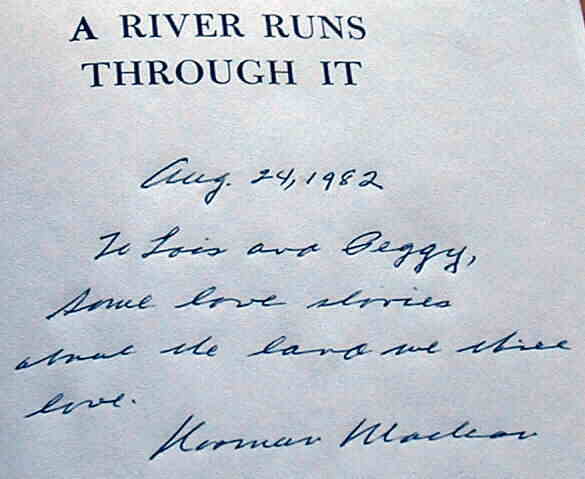 A RIVER RUNS
THROUGH IT
Aug. 24, 1982
To Lois and Peggy,
some love stories
about the land we three
love.
Norman Maclean